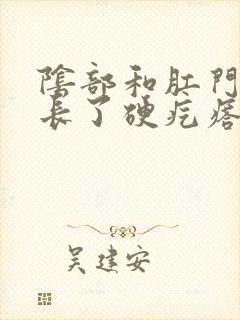 陰部和肛門
長了硬疙瘩
吴建安